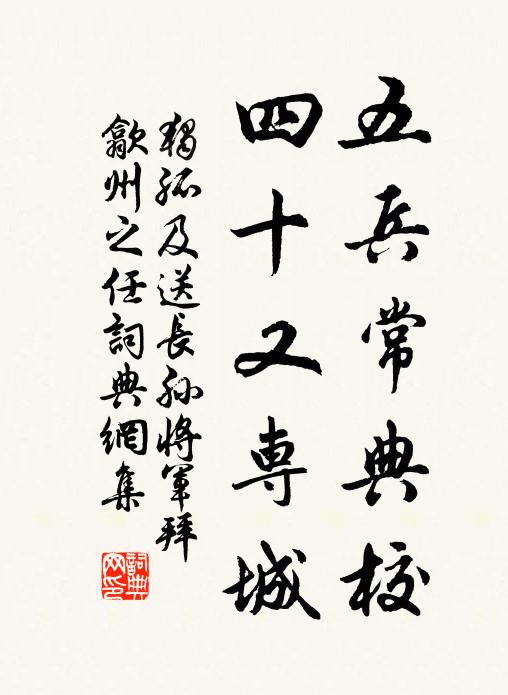 五兵常典校
四十又専城
獨孤及送長孫將軍拜
歙州之任詞典網集
詞典
网印